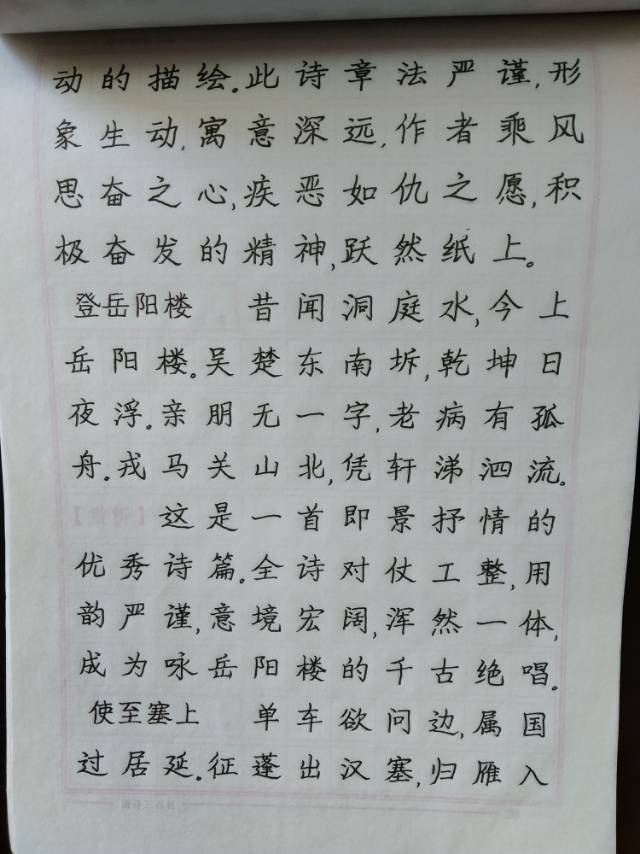 动的描绘。此诗章法严谨,形
象生动,寓意深远,作者乘风
思奋之心,疾恶如仇之愿,积
极奋发的精神,跃然纸上。
登岳阳楼 昔闻洞庭水,今上
岳阳楼。吴楚东南坼,乾坤日
夜浮。亲朋无一字,老病有孤
舟。戎马关山北,凭轩涕泗流。
这是一首即景抒情的
优秀诗篇。全诗对仗工整,用
韵严谨,意境宏阔,浑然一体,
成为咏岳阳楼的千古绝唱。
使至塞上 单车欲问边,属国
过居延。征蓬出汉塞,归雁入